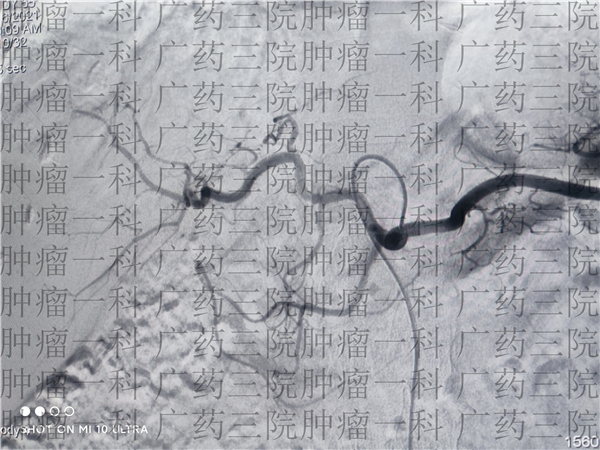 2021
肿瘤一科 广药三院肿瘤一科 广药三院
:09 AM
0/32
肿瘤一科 广药三院肿瘤一科 广药三院
sec
肿瘤一科 广药三院肿瘤一科 广药三院
肿瘤一科 广药三院肿瘤一科 广药三院
肿瘤一科 广药三院肿瘤一科 广药三院
肿瘤一科 广药三院肿瘤一科 广药三院
肿瘤一科 广药三院肿瘤一科 广药三院
肿瘤一科 广药三院肿瘤一科 广药三院
肿瘤一科 广药三院肿瘤一科 广药三院
肿瘤一科 广药三院肿瘤一科 广药三院
肿瘤一科 广药三院肿瘤一科 广药三院
SHOT ON MI 10 ULTRA
1560